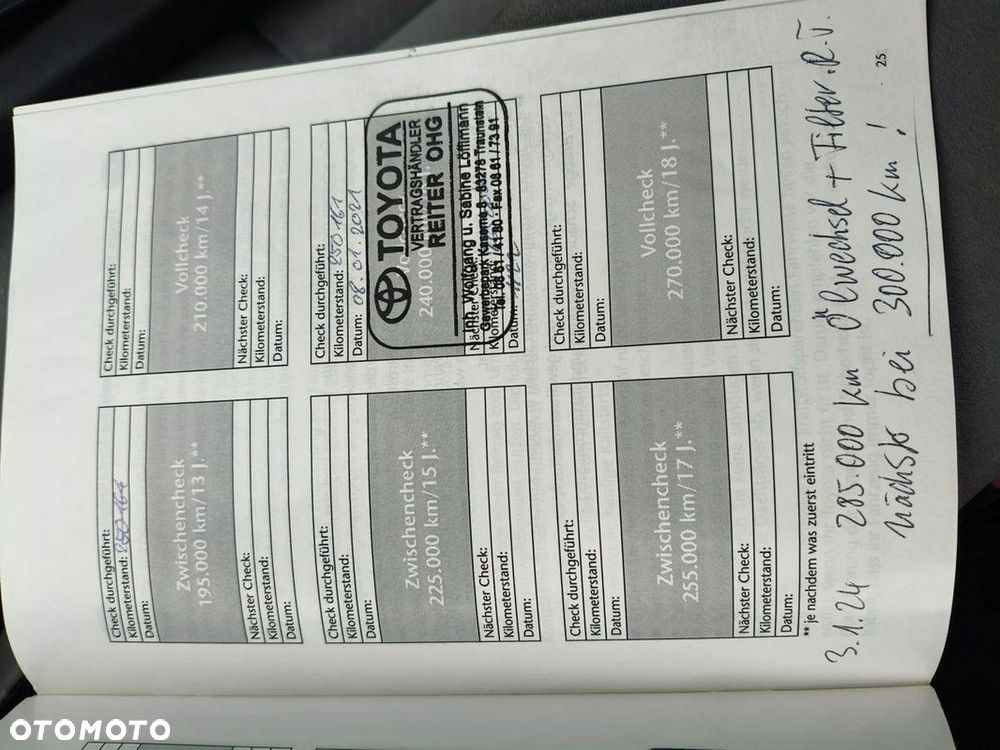 Check durchgeführt:
Kilometerstand: 250 161
Datum:
Zwischencheck
195.000 km/13 J.**
Nächster Check:
Kilometerstand:
Datum:
Check durchgeführt:
Kilometerstand:
Datum:
Vollcheck
210.000 km/14 J.**
Nächster Check:
Kilometerstand:
Datum:
Check durchgeführt:
Kilometerstand:
Datum:
Zwischencheck
225.000 km/15 J.**
Nächster Check:
Kilometerstand:
Datum:
Check durchgeführt:
Kilometerstand: 250 161
Datum: 08.01.2021
240.000
Nächster Check:
Kilometerstand:
Datum:
TOYOTA
VERTRAGSHÄNDLER
REITER OHG
Inh. Wolfgang u. Sabine Löfflmann
Gewerbepark Kaserne 8 · 83278 Traunstein
Tel. 08 61 / 41 80 · Fax 08 61 / 73 91
Check durchgeführt:
Kilometerstand:
Datum:
Zwischencheck
255.000 km/17 J.**
Nächster Check:
Kilometerstand:
Datum:
Check durchgeführt:
Kilometerstand:
Datum:
Vollcheck
270.000 km/18 J.**
Nächster Check:
Kilometerstand:
Datum:
** je nachdem was zuerst eintritt
3.1.24 285.000 km Ölwechsel + Filter. R-Ü
nächste bei 300.000 km!
25
OTOMOTO